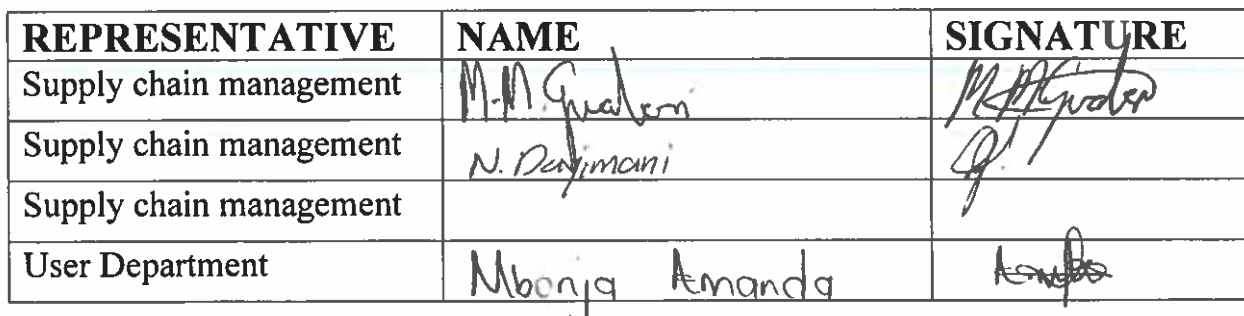 REPRESENTATIVE NAME SIGNATURE
Supply chain management M.M
Supply chain management N. Dayimani
Supply chain management
User Department Mbonja Amanda